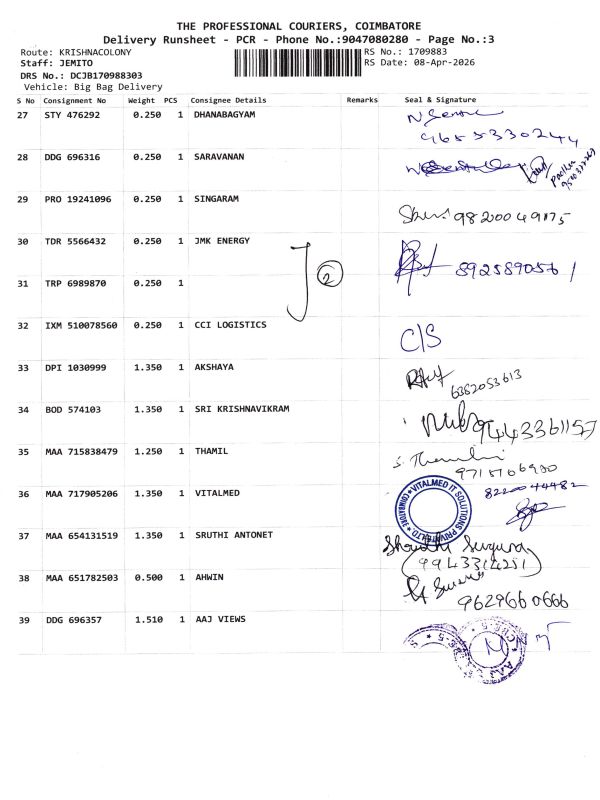 THE PROFESSIONAL COURIERS, COIMBATORE
Delivery Runsheet - PCR - Phone No.:9047080280 - Page No.:3
Route: KRISHNACOLONY RS No.: 1709883
Staff: JEMITO RS Date: 08-Apr-2026
DRS No.: DCJB170988303
Vehicle: Big Bag Delivery
S No Consignment No Weight PCS Consignee Details Remarks Seal & Signature
27 STY 476292 0.250 1 DHANABAGYAM
9655330244
28 DDG 696316 0.250 1 SARAVANAN
29 PRO 19241096 0.250 1 SINGARAM
9820049175
30 TDR 5566432 0.250 1 JMK ENERGY
2
8925890561
31 TRP 6989870 0.250 1
32 IXM 510078560 0.250 1 CCI LOGISTICS
C/S
33 DPI 1030999 1.350 1 AKSHAYA
6382053613
34 BOD 574103 1.350 1 SRI KRISHNAVIKRAM
9443361157
35 MAA 715838479 1.250 1 THAMIL
S.
36 MAA 717905206 1.350 1 VITALMED
VITALMED IT SOLUTIONS PRIVATE LTD
COIMBATORE
8220044982
37 MAA 654131519 1.350 1 SRUTHI ANTONET
38 MAA 651782503 0.500 1 AHWIN
9629660666
39 DDG 696357 1.510 1 AAJ VIEWS